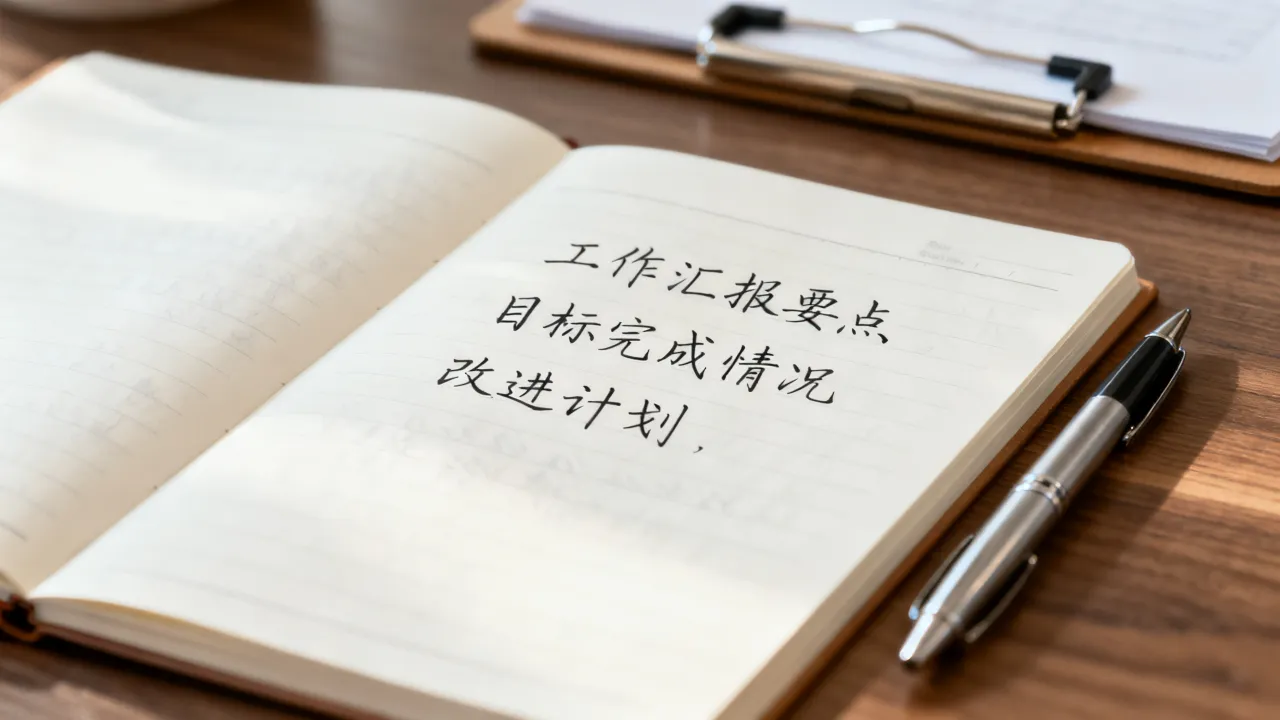 工作汇报要点
目标完成情况
改进计划，